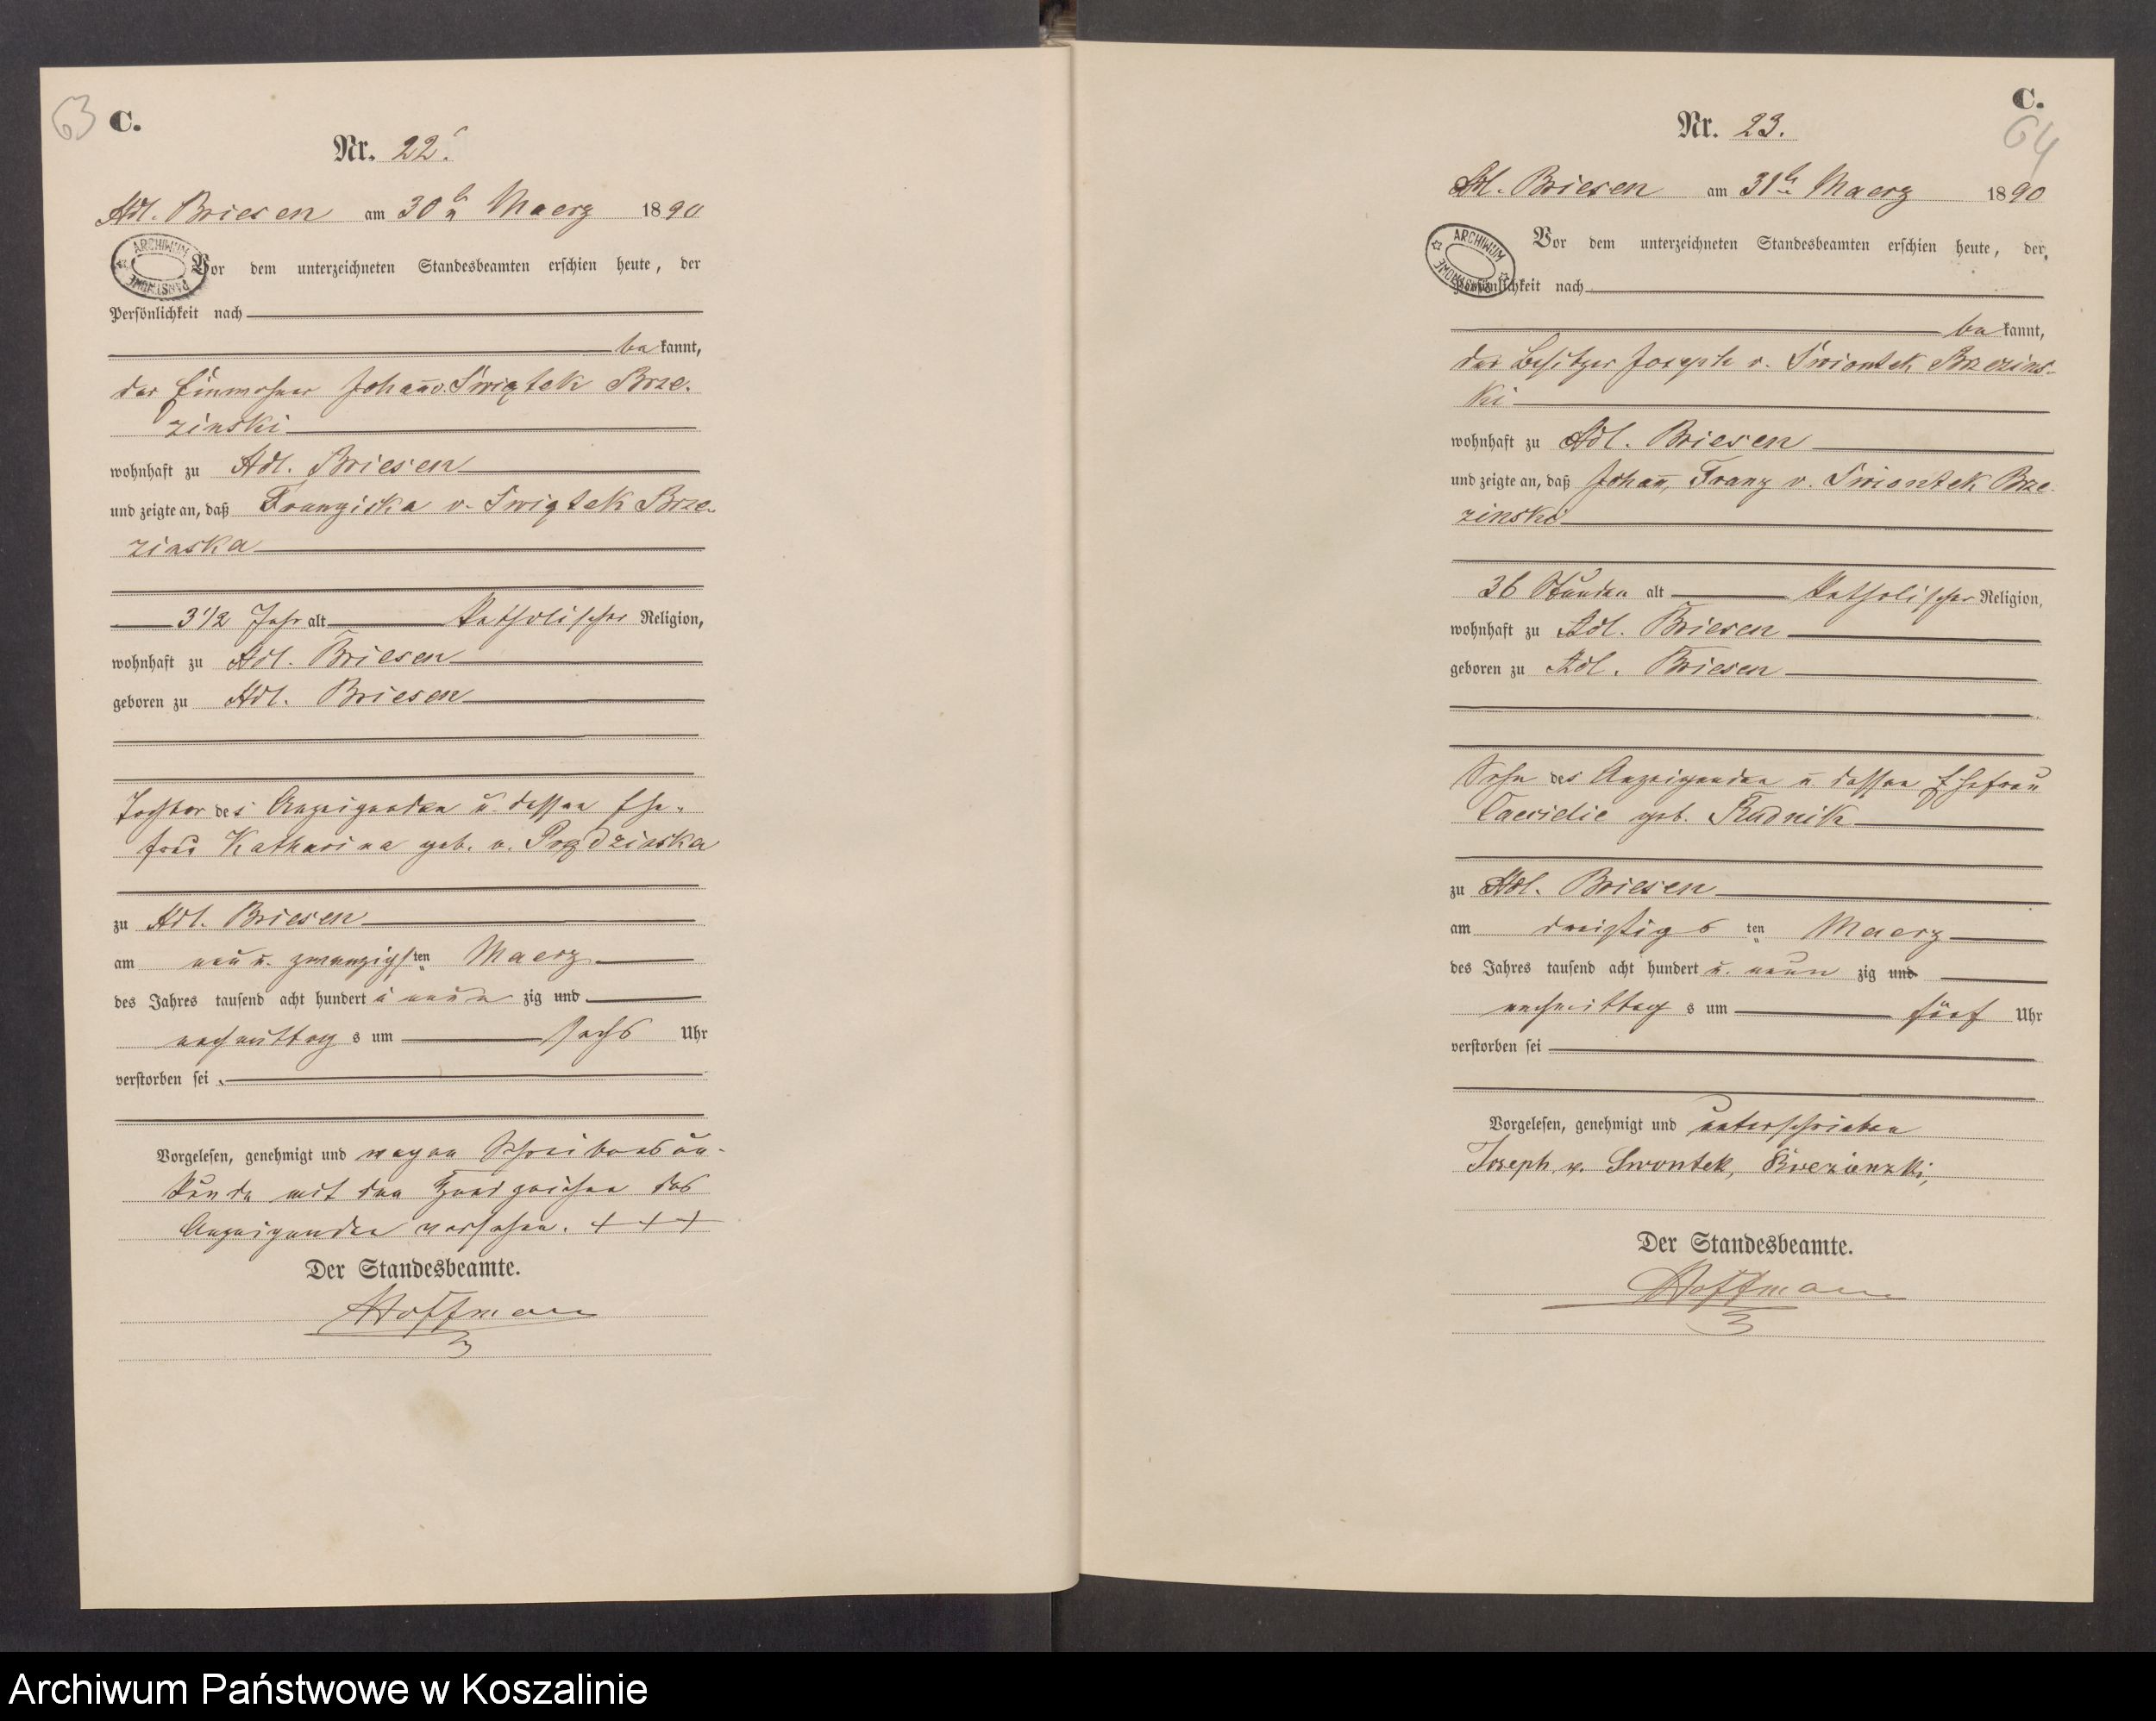 63
C.
Nr. 22.
Adl. Briesen am 30ten Maerz 1890
ARCHIWUM PAŃSTWOWE
Vor dem unterzeichneten Standesbeamten erschien heute, der
Persönlichkeit nach
bekannt,
der Einwohner Johann v. Świątek Brze-
zinski
wohnhaft zu Adl. Briesen
und zeigte an, daß Franziska v. Swiątek Brze-
zinska
3 1/2 Jahr alt Katholischer Religion,
wohnhaft zu Adl. Briesen
geboren zu Adl. Briesen
Tochter des Anzeigenden u. dessen Ehe-
frau Katharina geb. v. Prądzinska
zu Adl. Briesen
am neun u. zwanzigsten Maerz
des Jahres tausend acht hundert u neun zig und
nachmittag s um sechs Uhr
verstorben sei
Vorgelesen, genehmigt und wegen Schreibensun-
kunde mit den Handzeichen des
Anzeigenden versehen. + + +
Der Standesbeamte.
Hoffmann
C.
64
Nr. 23.
Adl. Briesen am 31ten Maerz 1890
ARCHIWUM PAŃSTWOWE
Vor dem unterzeichneten Standesbeamten erschien heute, der
Persönlichkeit nach
bekannt,
der Besitzer Joseph v. Swiontek Brzezins-
ki
wohnhaft zu Adl. Briesen
und zeigte an, daß Johann, Franz v. Swiontek Brze-
zinski
36 Stunden alt Katholischer Religion,
wohnhaft zu Adl. Briesen
geboren zu Adl. Briesen
Sohn des Anzeigenden u dessen Ehefrau
geb. Rudnik
zu Adl. Briesen
am dreißigsten Maerz
des Jahres tausend acht hundert u. neun zig und
nachmittag s um fünf Uhr
verstorben sei
Vorgelesen, genehmigt und unterschrieben
Joseph v. Swontek, Brezinzki,
Der Standesbeamte.
Hoffmann
Archiwum Państwowe w Koszalinie